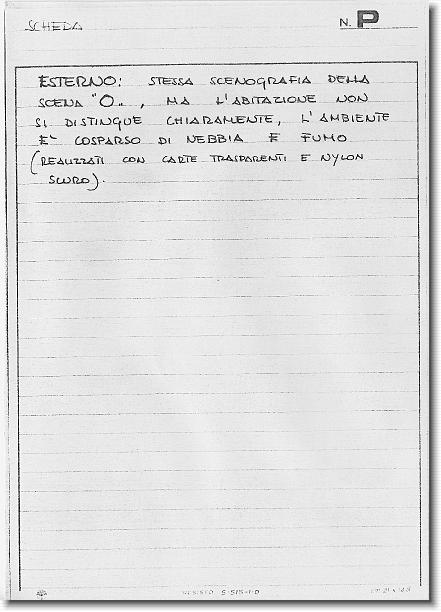 SCHEDA N. P
ESTERNO: STESSA SCENOGRAFIA DELLA
SCENA "O", MA L'ABITAZIONE NON
SI DISTINGUE CHIARAMENTE, L'AMBIENTE
E' COSPARSO DI NEBBIA E FUMO
(REALIZZATI CON CARTE TRASPARENTI E NYLON
SCURO).